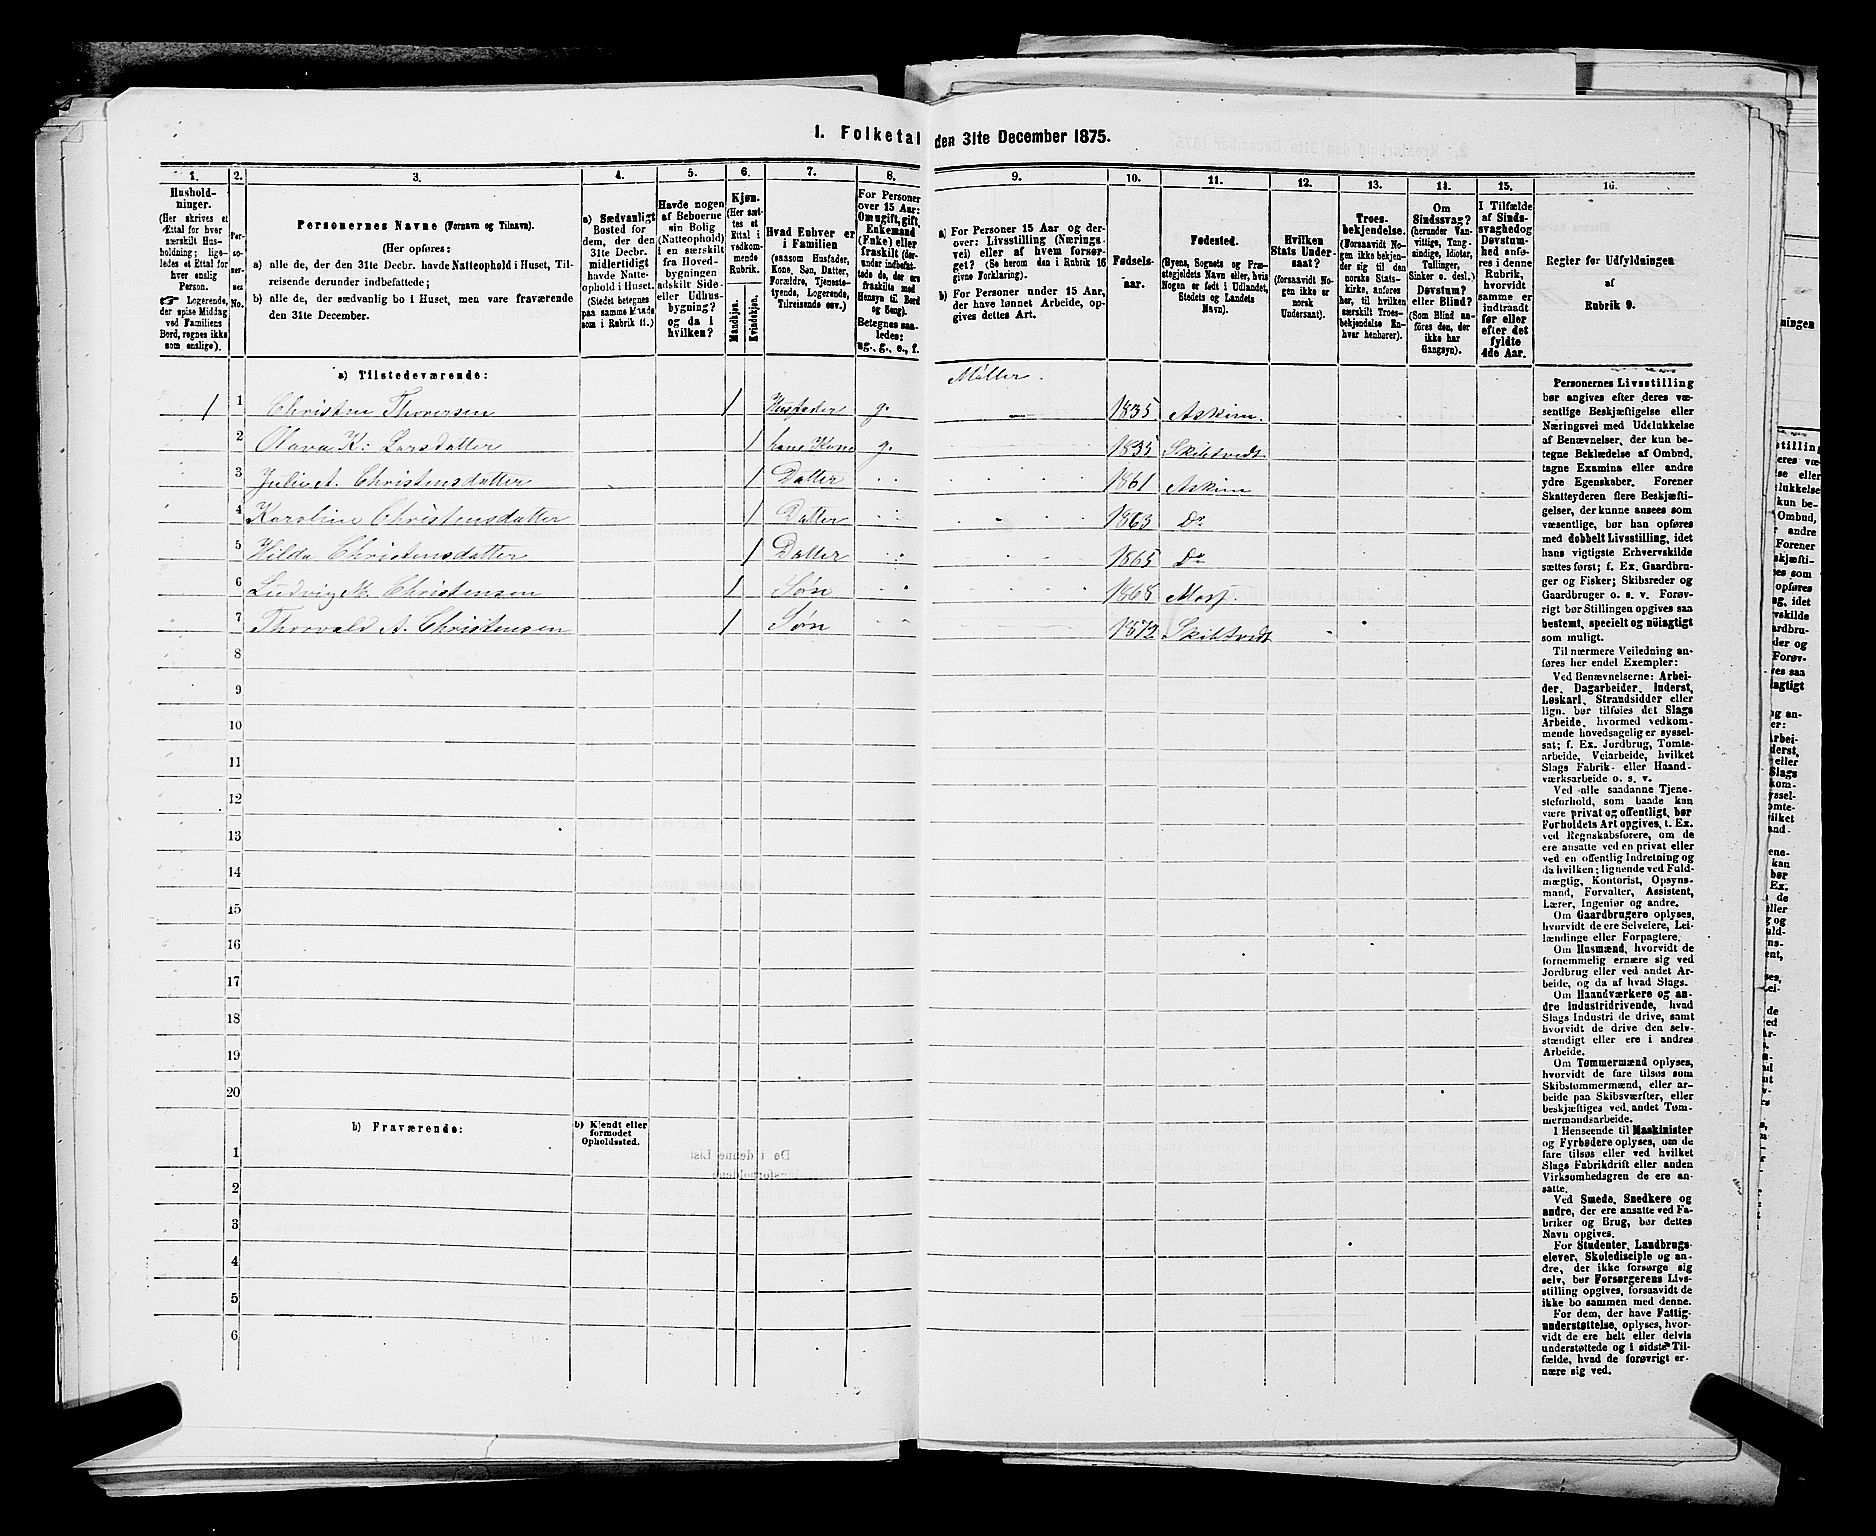 1. Folketal den 31te December 1875.
1. 2. 3. 4. 5. 6. 7. 8. 9. 10. 11. 12. 13. 14. 15. 16.
Hushold-
ninger.
(Her skrives et
Ettal for hver
særskilt Hus-
holdning; lige-
ledes et Ettal for
hver enslig
Person.
☞ Logerende,
der spise Middag
ved Familiens
Bord, regnes ikke
som enslige).
Per-
so-
ner-
nes
No.
Personernes Navne (Fornavn og Tilnavn).
(Her opføres:
a) alle de, der den 31te Decbr. havde Natteophold i Huset, Til-
reisende derunder indbefattede;
b) alle de, der sædvanlig bo i Huset, men vare fraværende
den 31te December.
a) Sædvanligt
Bosted for
dem, der den
31te Decbr.
midlertidigt
havde Natte-
ophold i Huset.
(Stedet betegnes
paa samme Maade
som i Rubrik 11.)
Havde nogen
af Beboerne
sin Bolig
(Natteophold)
i en særskilt
fra Hoved-
bygningen
adskilt Side-
eller Udhus-
bygning?
og da i
hvilken?
Kjøn.
(Her sæt-
tes et
Ettal i
vedkom-
mende
Rubrik.
Mandkjøn.
Kvindekjøn.
Hvad Enhver er
i Familien
(saasom Husfader,
Kone, Søn, Datter,
Forældre, Tjeneste-
tyende, Logerende,
Tilreisende osv.)
For Personer
over 15 Aar:
Om ugift, gift,
Enkemand
(Enke) eller
fraskilt (her-
under indbefat-
tede de, der ere
fraskilte med
Hensyn til Bord
og Seng).
Betegnes saa-
ledes:
ug., g., e., f.
a) For Personer 15 Aar og der-
over: Livsstilling (Nærings-
vei) eller af hvem forsør-
get? (Se herom den i Rubrik 16
givne Forklaring).
b) For Personer under 15 Aar,
der have lønnet Arbeide, op-
gives dettes Art.
Fødsels-
aar.
Fødested.
(Byens, Sognets og Præ-
stegjeldets Navn eller, hvis
Nogen er født i Udlandet,
Stedets og Landets
Navn).
Hvilken
Stats Under-
saat?
(forsaavidt No-
gen ikke er
norsk
Undersaat).
Troes-
bekjendelse.
(Forsaavidt No-
gen ikke bekjen-
der sig til den
norske Stats-
kirke, anføres
her, til hvilken
særskilt Troes-
bekjendelse En-
hver henhører).
Om
Sindssvag?
(herunder Van-
vittige, Tung-
sindige, Idioter,
Tullinger,
Sinker o. desl.)
Døvstum?
eller Blind?
(Som Blind an-
føres den, der
ikke har
Gangsyn).
I Tilfælde
af Sinds-
svaghed og
Døvstum-
hed anfø-
res i denne
Rubrik,
hvorvidt
samme er
indtraadt
før eller
efter det
fyldte
4de Aar.
Regler for Udfyldningen
af
Rubrik 9.
a) Tilstedeværende:
Møller.
1 1 Christen Thoresen 1 Husfader g. 1835 Askim
2 Olava K: Larsdatter 1 hans Kone g. 1835 Skibtvedt
3 Julie A. Christensdatter 1 Datter 1861 Askim
4 Karoline Christensdatter 1 Datter 1863 Do
5 Hilda Christensdatter 1 Datter 1865 Do
6 Ludvig M. Christensen 1 Søn 1868 Moss.
7 Thorvald A. Christensen 1 Søn 1872 Skibtvedt
8
9
10
11
12
13
14
15
16
17
18
19
20
b) Fraværende:
b) Kjendt eller
formodet
Opholdssted.
1
2
3
4
5
6
Personernes Livsstilling
bør angives efter deres væ-
sentlige Beskjæftigelse eller
Næringsvei med Udelukkelse
af Benævnelser, der kun be-
tegne Beklædelse af Ombud,
tagne Examina eller andre
ydre Egenskaber. Forener
Skatteyderen flere Beskjæfti-
gelser, der kunne ansees som
væsentlige, bør han opføres
med dobbelt Livsstilling, idet
hans vigtigste Erhvervskilde
sættes først; f. Ex. Gaardbru-
ger og Fisker; Skibsreder og
Gaardbruger o. s. v. Forøv-
rigt bør Stillingen opgives saa
bestemt, specielt og nöiagtigt
som muligt.
Til nærmere Veiledning an-
føres her endel Exempler:
Ved Benævnelserne: Arbei-
der, Dagarbeider, Inderst,
Løskarl, Strandsidder eller
lign. bør tilføies det Slags
Arbeide, hvormed vedkom-
mende hovedsagelig er syssel-
sat; f. Ex. Jordbrug, Tomte-
arbeide, Veiarbeide, hvilket
Slags Fabrik- eller Haand-
værksarbeide o. s. v.
Ved alle saadanne Tjene-
steforhold, som baade kan
være privat og offentligt, bør
Forholdets Art opgives, t. Ex.
ved Regnskabsførere, om de
ere ansatte ved en privat eller
ved en offentlig Indretning og
da hvilken; lignende ved Fuld-
mægtig, Kontorist, Opsyns-
mand, Forvalter, Assistent,
Lærer, Ingeniør og andre.
Om Gaardbrugere oplyses,
hvorvidt de ere Selveiere, Lei-
lændinge eller Forpagtere.
Om Husmænd, hvorvidt de
fornemmelig ernære sig ved
Jordbrug eller ved andet Ar-
beide, og da af hvad Slags.
Om Haandværkere og an-
dre Industridrivende, hvad
Slags Industri de drive, samt
hvorvidt de drive den selv-
stændigt eller ere i andres
Arbeide.
Om Tømmermænd oplyses,
hvorvidt de fare tilsøs som
Skibstømmermænd, eller ar-
beide paa Skibsværfter, eller
beskjæftiges ved andet Tøm-
mermandsarbeide.
I Henseende til Maskinister
og Fyrbødere oplyses, om de
fare tilsøs eller ved hvilket
Slags Fabrikdrift eller anden
Virksomhedsgren de ere an-
satte.
Ved Smede, Snedkere og
andre, der ere ansatte ved Fa-
briker og Brug, bør dettes
Navn opgives.
For Studenter, Landbrugs-
elever, Skoledisciple og an-
dre, der ikke forsørge sig
selv, bør Forsørgerens Livs-
stilling opgives, forsaavidt de
ikke bo sammen med denne.
For dem, der have Fattig-
understøttelse, oplyses, hvor-
vidt de ere helt eller delvis
understøttede og i sidste Til-
fælde, hvad de forøvrigt er-
nære sig ved.